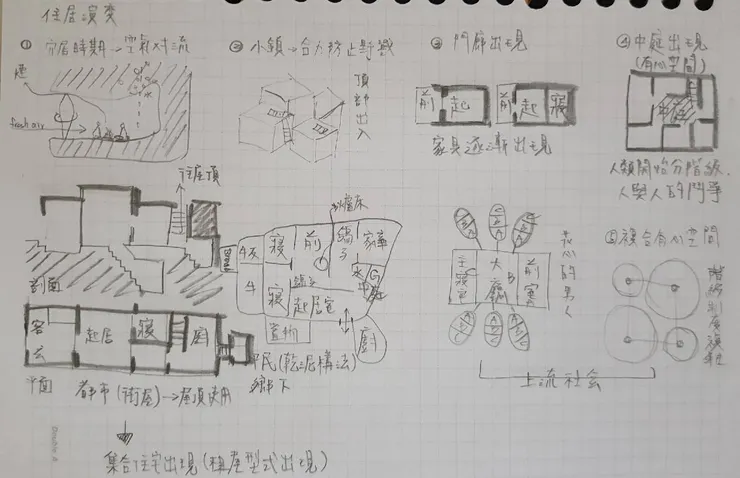 住居演变
① 穴居時期→空氣对流
煙
fresh air
② 小鎮→合力防止野獸
頂部出入
③ 門廊出現
前 起
前 起 寢
家具逐漸出現
④ 中庭出現
(有心空間)
人類開始分階級.
人與人的鬥爭
往屋頂
剖面
客
起居
寢
廚
平面
都市(街屋)→屋頂使用
集合住宅出現(租屋型式出現)
寢
前
牛
寢
起居室
置物
廚
平民(乾泥構法)
鄉下
主寢室
大廳
前室
B
A
B
C
上流社会
⑤ 複合有心空間
Double A